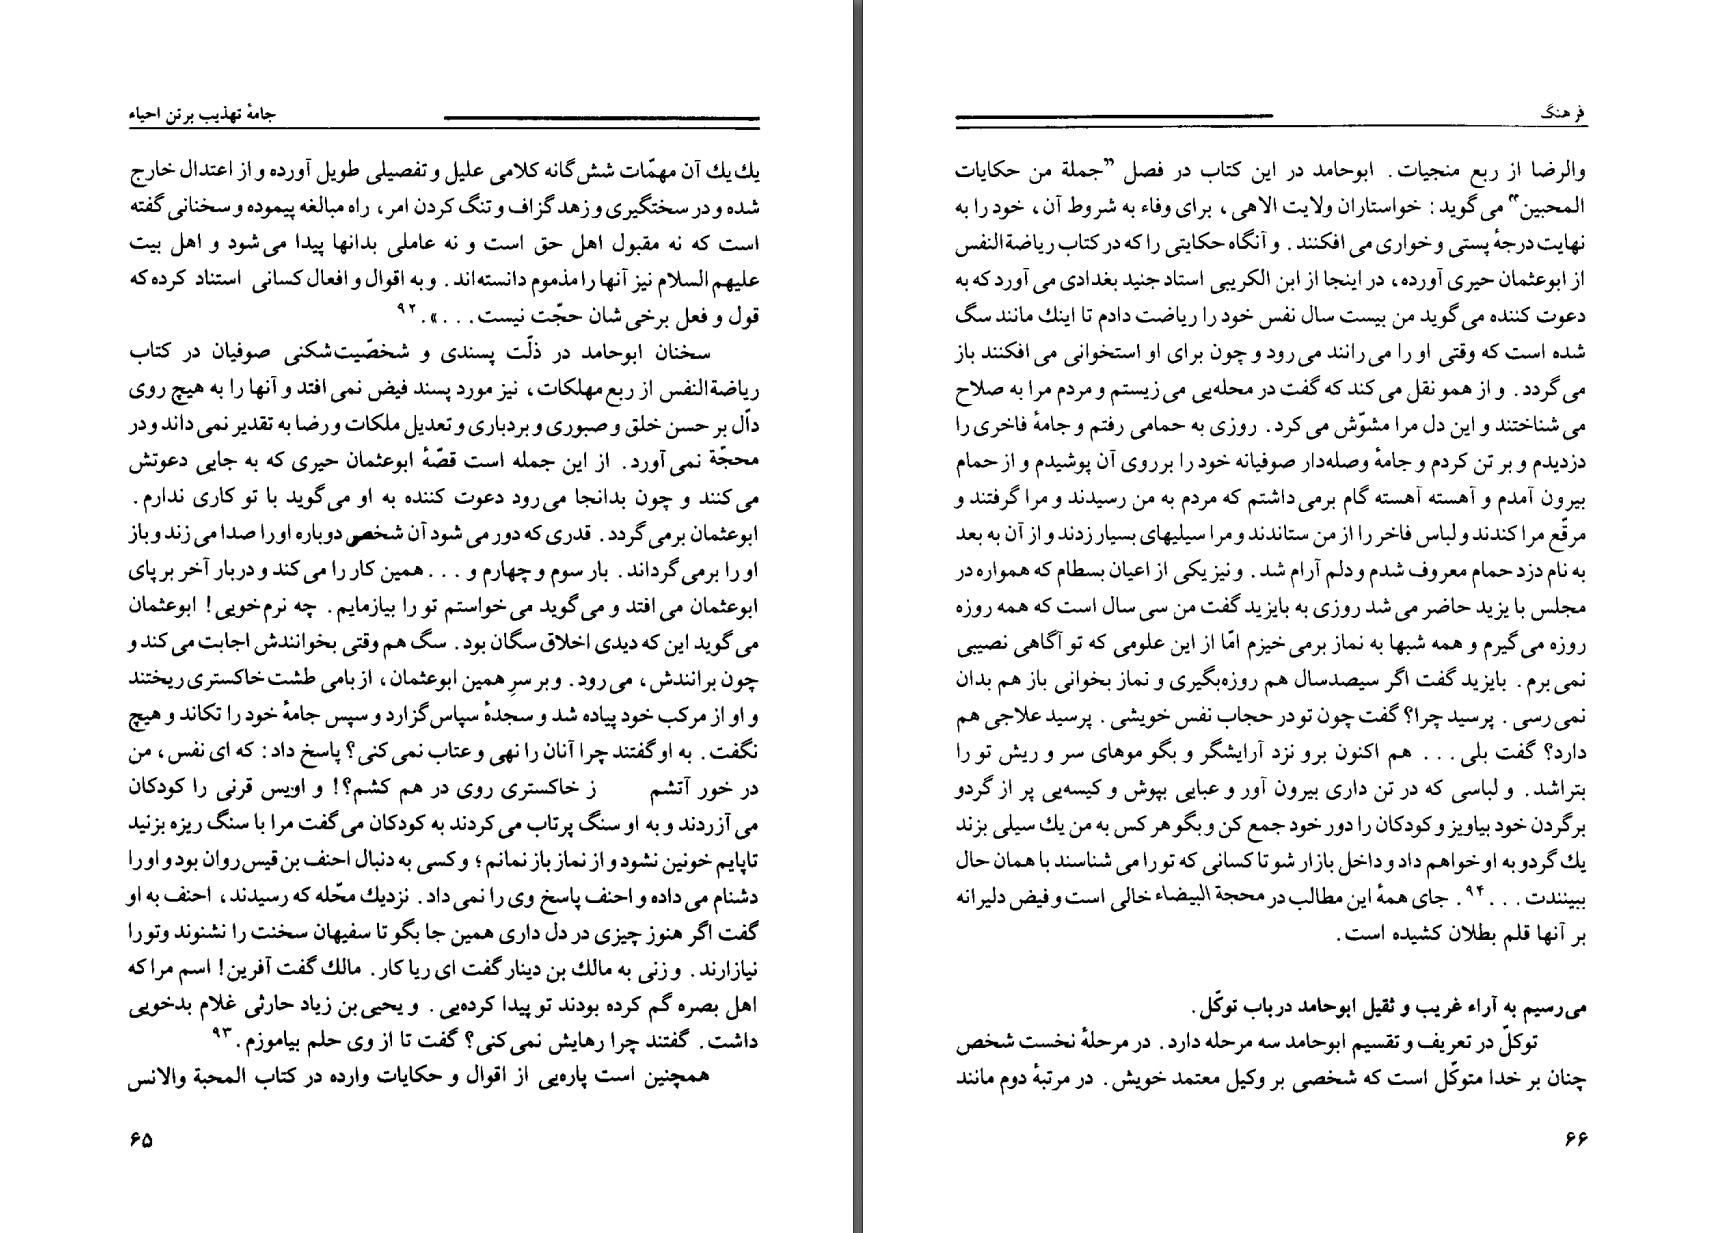 جامهٔ تهذیب بر تن احیاء
یك یك آن مهمّات شش گانه کلامی علیل و تفصیلی طویل آورده و از اعتدال خارج
شده و در سختگیری و زهد گزاف و تنگ کردن امر، راه مبالغه پیموده و سخنانی گفته
است که نه مقبول اهل حق است و نه عاملی بدانها پیدا می شود و اهل بیت
علیهم السلام نیز آنها را مذموم دانسته اند. و به اقوال و افعال کسانی استناد کرده که
قول و فعل برخی شان حجّت نیست...».۹۲
سخنان ابوحامد در ذلّت پسندی و شخصّیت شکنی صوفیان در کتاب
ریاضة النفس از ربع مهلکات، نیز مورد پسند فیض نمی افتد و آنها را به هیچ روی
دالّ بر حسن خلق و صبوری و بردباری و تعدیل ملکات و رضا به تقدیر نمی داند و در
محجّة نمی آورد. از این جمله است قصّهٔ ابوعثمان حیری که به جایی دعوتش
می کنند و چون بدانجا می رود دعوت کننده به او می گوید با تو کاری ندارم.
ابوعثمان برمی گردد. قدری که دور می شود آن شخص دوباره او را صدا می زند و باز
او را برمی گرداند. بار سوم و چهارم و... همین کار را می کند و در بار آخر بر پای
ابوعثمان می افتد و می گوید می خواستم تو را بیازمایم. چه نرم خویی! ابوعثمان
می گوید این که دیدی اخلاق سگان بود. سگ هم وقتی بخوانندش اجابت می کند و
چون برانندش، می رود. و بر سرِ همین ابوعثمان، از بامی طشت خاکستری ریختند
و او از مرکب خود پیاده شد و سجدهٔ سپاس گزارد و سپس جامهٔ خود را تکاند و هیچ
نگفت. به او گفتند چرا آنان را نهی و عتاب نمی کنی؟ پاسخ داد: که ای نفس، من
در خور آتشم ز خاکستری روی در هم کشم؟! و اویس قرنی را کودکان
می آزردند و به او سنگ پرتاب می کردند به کودکان می گفت مرا با سنگ ریزه بزنید
تا پایم خونین نشود و از نماز باز نمانم؛ و کسی به دنبال احنف بن قیس روان بود و او را
دشنام می داده و احنف پاسخ وی را نمی داد. نزدیك محّله که رسیدند، احنف به او
گفت اگر هنوز چیزی در دل داری همین جا بگو تا سفیهان سخنت را نشنوند و تو را
نیازارند. و زنی به مالك بن دینار گفت ای ریا کار. مالك گفت آفرین! اسم مرا که
اهل بصره گم کرده بودند تو پیدا کرده یی. و یحیی بن زیاد حارثی غلام بدخویی
داشت. گفتند چرا رهایش نمی کنی؟ گفت تا از وی حلم بیاموزم.۹۳
همچنین است پاره یی از اقوال و حکایات وارده در کتاب المحبة والانس
۶۵
فرهنگ
والرضا از ربع منجیات. ابوحامد در این کتاب در فصل ”جملة من حکایات
المحبین“ می گوید: خواستاران ولایت الاهی، برای وفاء به شروط آن، خود را به
نهایت درجهٔ پستی و خواری می افکنند. و آنگاه حکایتی را که در کتاب ریاضة النفس
از ابوعثمان حیری آورده، در اینجا از ابن الکریبی استاد جنید بغدادی می آورد که به
دعوت کننده می گوید من بیست سال نفس خود را ریاضت دادم تا اینك مانند سگ
شده است که وقتی او را می رانند می رود و چون برای او استخوانی می افکنند باز
می گردد. و از همو نقل می کند که گفت در محله یی می زیستم و مردم مرا به صلاح
می شناختند و این دل مرا مشوّش می کرد. روزی به حمامی رفتم و جامهٔ فاخری را
دزدیدم و بر تن کردم و جامهٔ وصله دار صوفیانه خود را بر روی آن پوشیدم و از حمام
بیرون آمدم و آهسته آهسته گام برمی داشتم که مردم به من رسیدند و مرا گرفتند و
مرقّع مرا کندند و لباس فاخر را از من ستاندند و مرا سیلیهای بسیار زدند و از آن به بعد
به نام دزد حمام معروف شدم و دلم آرام شد. و نیز یکی از اعیان بسطام که همواره در
مجلس با یزید حاضر می شد روزی به بایزید گفت من سی سال است که همه روزه
روزه می گیرم و همه شبها به نماز برمی خیزم امّا از این علومی که تو آگاهی نصیبی
نمی برم. بایزید گفت اگر سیصدسال هم روزه بگیری و نماز بخوانی باز هم بدان
نمی رسی. پرسید چرا؟ گفت چون تو در حجاب نفس خویشی. پرسید علاجی هم
دارد؟ گفت بلی... هم اکنون برو نزد آرایشگر و بگو موهای سر و ریش تو را
بتراشد. و لباسی که در تن داری بیرون آور و عبایی بپوش و کیسه یی پر از گردو
برگردن خود بیاویز و کودکان را دور خود جمع کن و بگو هر کس به من یك سیلی بزند
یك گردو به او خواهم داد و داخل بازار شو تا کسانی که تو را می شناسند با همان حال
ببینندت...۹۴. جای همهٔ این مطالب در محجة البیضاء خالی است و فیض دلیرانه
بر آنها قلم بطلان کشیده است.
می رسیم به آراء غریب و ثقیل ابوحامد در باب توکّل.
توکلّ در تعریف و تقسیم ابوحامد سه مرحله دارد. در مرحلهٔ نخست شخص
چنان بر خدا متوکّل است که شخصی بر وکیل معتمد خویش. در مرتبهٔ دوم مانند
۶۶